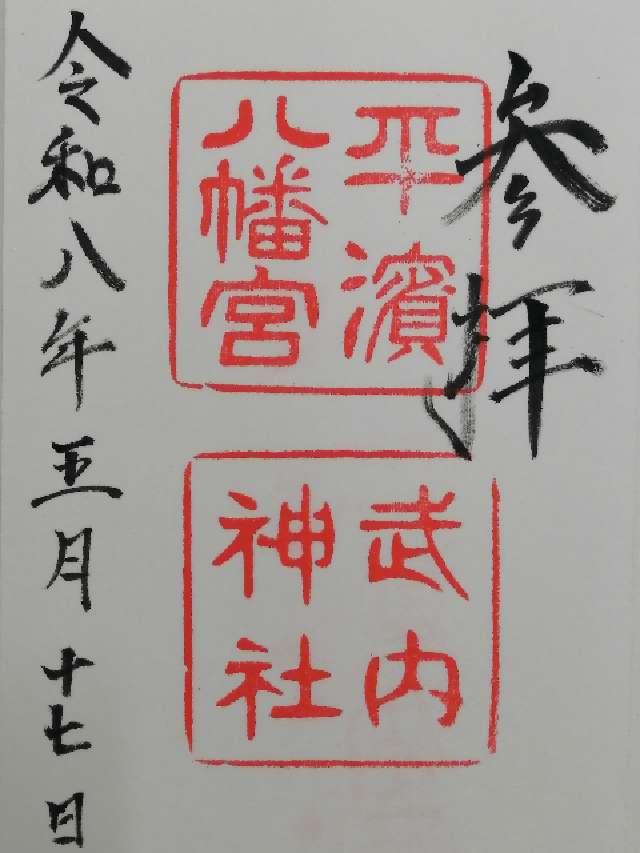 参拝
平濱
八幡宮
武内
神社
令和八年五月十七日